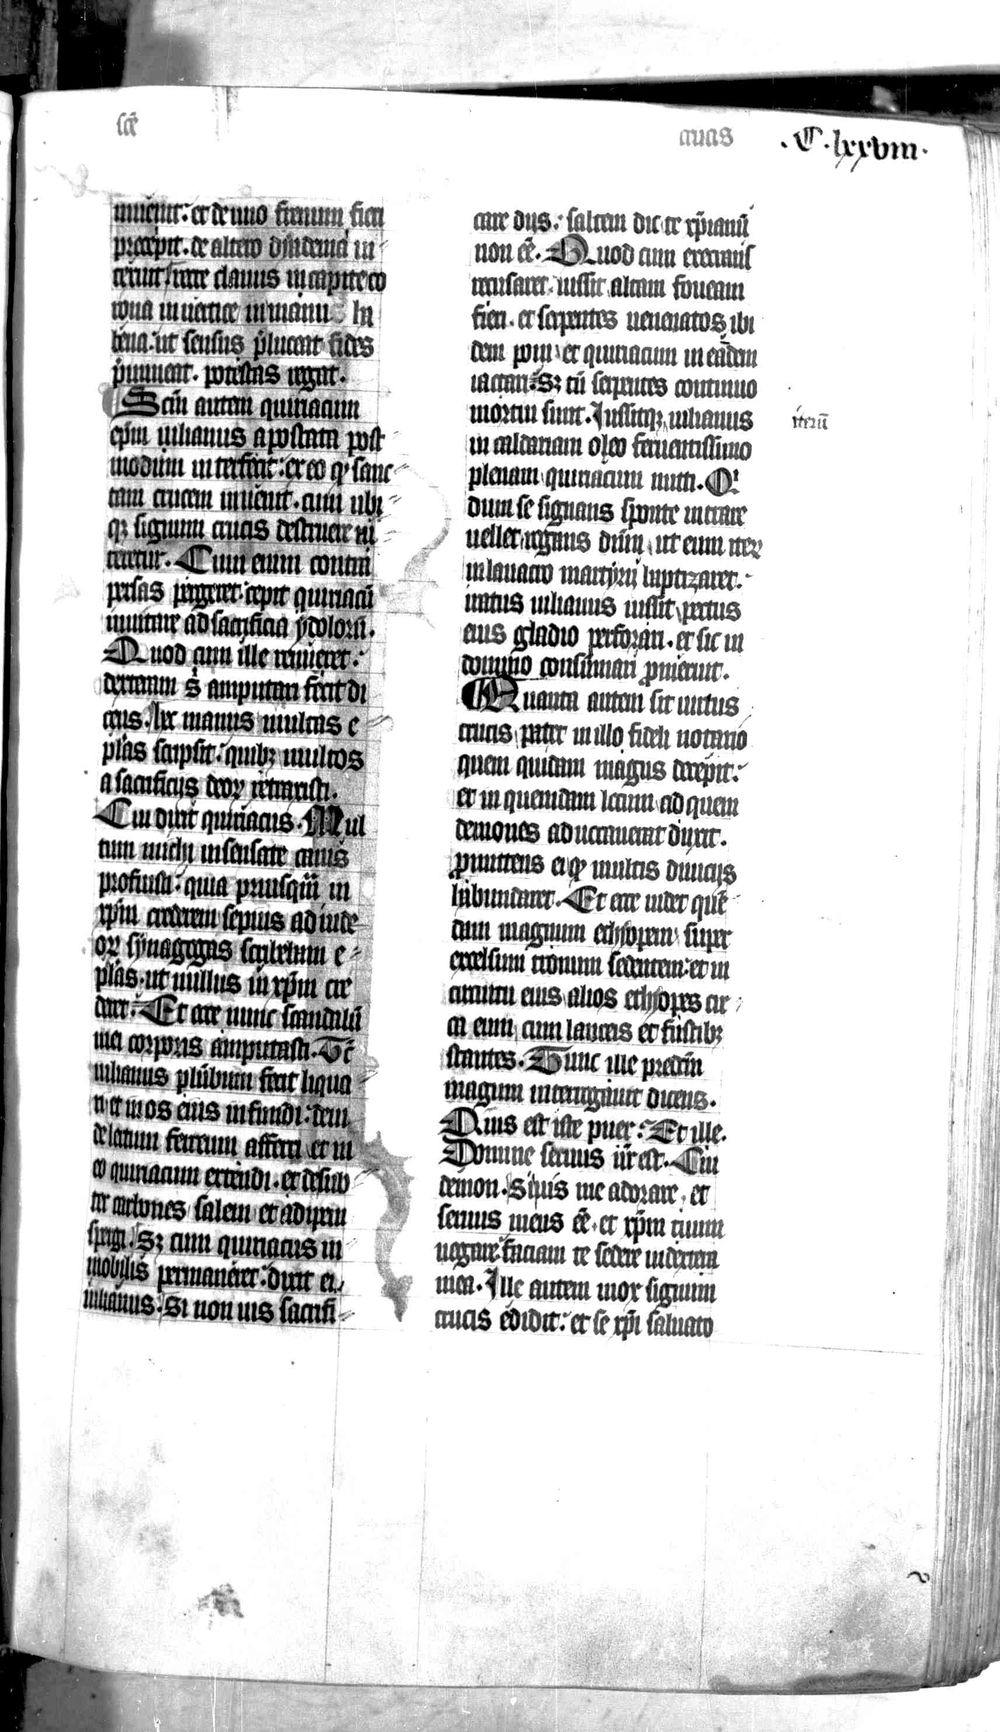 scē
crucis
.C.lxxviii.
inuenit: et de uno frenum fieri
precepit. de altero dyadema in
seruit
recte clauus in capite co
rona in uertice in manu
In
bena. ut sensus p̄luceat fides
p̄mineat. potestas regat.
Scm̄ autem quiriacum
ep̄m iulianus apostata post
modum interfecit: ex eo qꝫ sanc
tam crucem inuenit. cum ubi
qꝫ signum crucis destruere ni
teretur. Cum enim contra
persas pergeret: cepit quiriacū
inuitare ad sacrificia ydolorū.
Quod cum ille renueret:
dexteram s̄ amputari fecit di
cens. hec manus multas e
pl̄as scripsit: quibꝫ multos
a sacrificijs deoꝝ retraxisti.
Cui dixit quiriacus. Mul
tum michi insensate canis
profuisti: quia priusqūā in
xp̄m crederem sepius ad iude
oꝝ synagogas scribebam e
pl̄as. ut nullus in xp̄m cre
deret. Et ecce nunc scandalū
mei corporis amputasti. Tc̄
iulianus plūbum fecit liqua
ri et in os eius infundi: dein
de lectum ferreum afferri et in
eo quiriacum extendi. et desub
ter carbones salem et adipem
spergi. Sꝫ cum quiriacus in
mobilis permaneret: dixit ei
iulianus. Si non uis sacrifi
care dijs: saltem dic te xp̄ianū
non eē. Quod cum execrans
recusaret. iussit altam foueam
fieri. et serpentes uenenatos ibi
dem poni et quiriacum in eādem
iactari. Sꝫ tū serpentes continuo
mortui sunt. Iussitqꝫ iulianus
iterū
in caldariam oleo feruentissimo
plenam quiriacum mitti. Qi
dum se signans sponte intrare
uellet rogans dn̄m ut eum iteꝝ
in lauacro martyrij baptizaret.
iratus iulianus iussit pectus
eius gladio perforari. et sic in
domino consummari promeruit.
Quanta autem sit uirtus
crucis patet in illo fideli notario
quem quidam magus decepit:
et in quemdam locum ad quem
demones aduocauerat duxit.
promittens ei qꝫ multis diuicijs
habundaret. Et ecce uidet quē
dam magnum ethyopem super
excelsum tronum sedentem: et in
circuitu eius alios ethyopes cir
ca eum cum lanceis et fustibꝫ
stantes. Tunc ille predcm̄
magum interrogauit dicens.
Quis est iste puer: Et ille.
Domine seruus ur̄ est. Cui
demon. Si uis me adorare, et
seruus meus eē. et xp̄m tuum
negare: faciam te sedere in dextera
mea. Ille autem mox signum
crucis edidit: et se xp̄i saluato